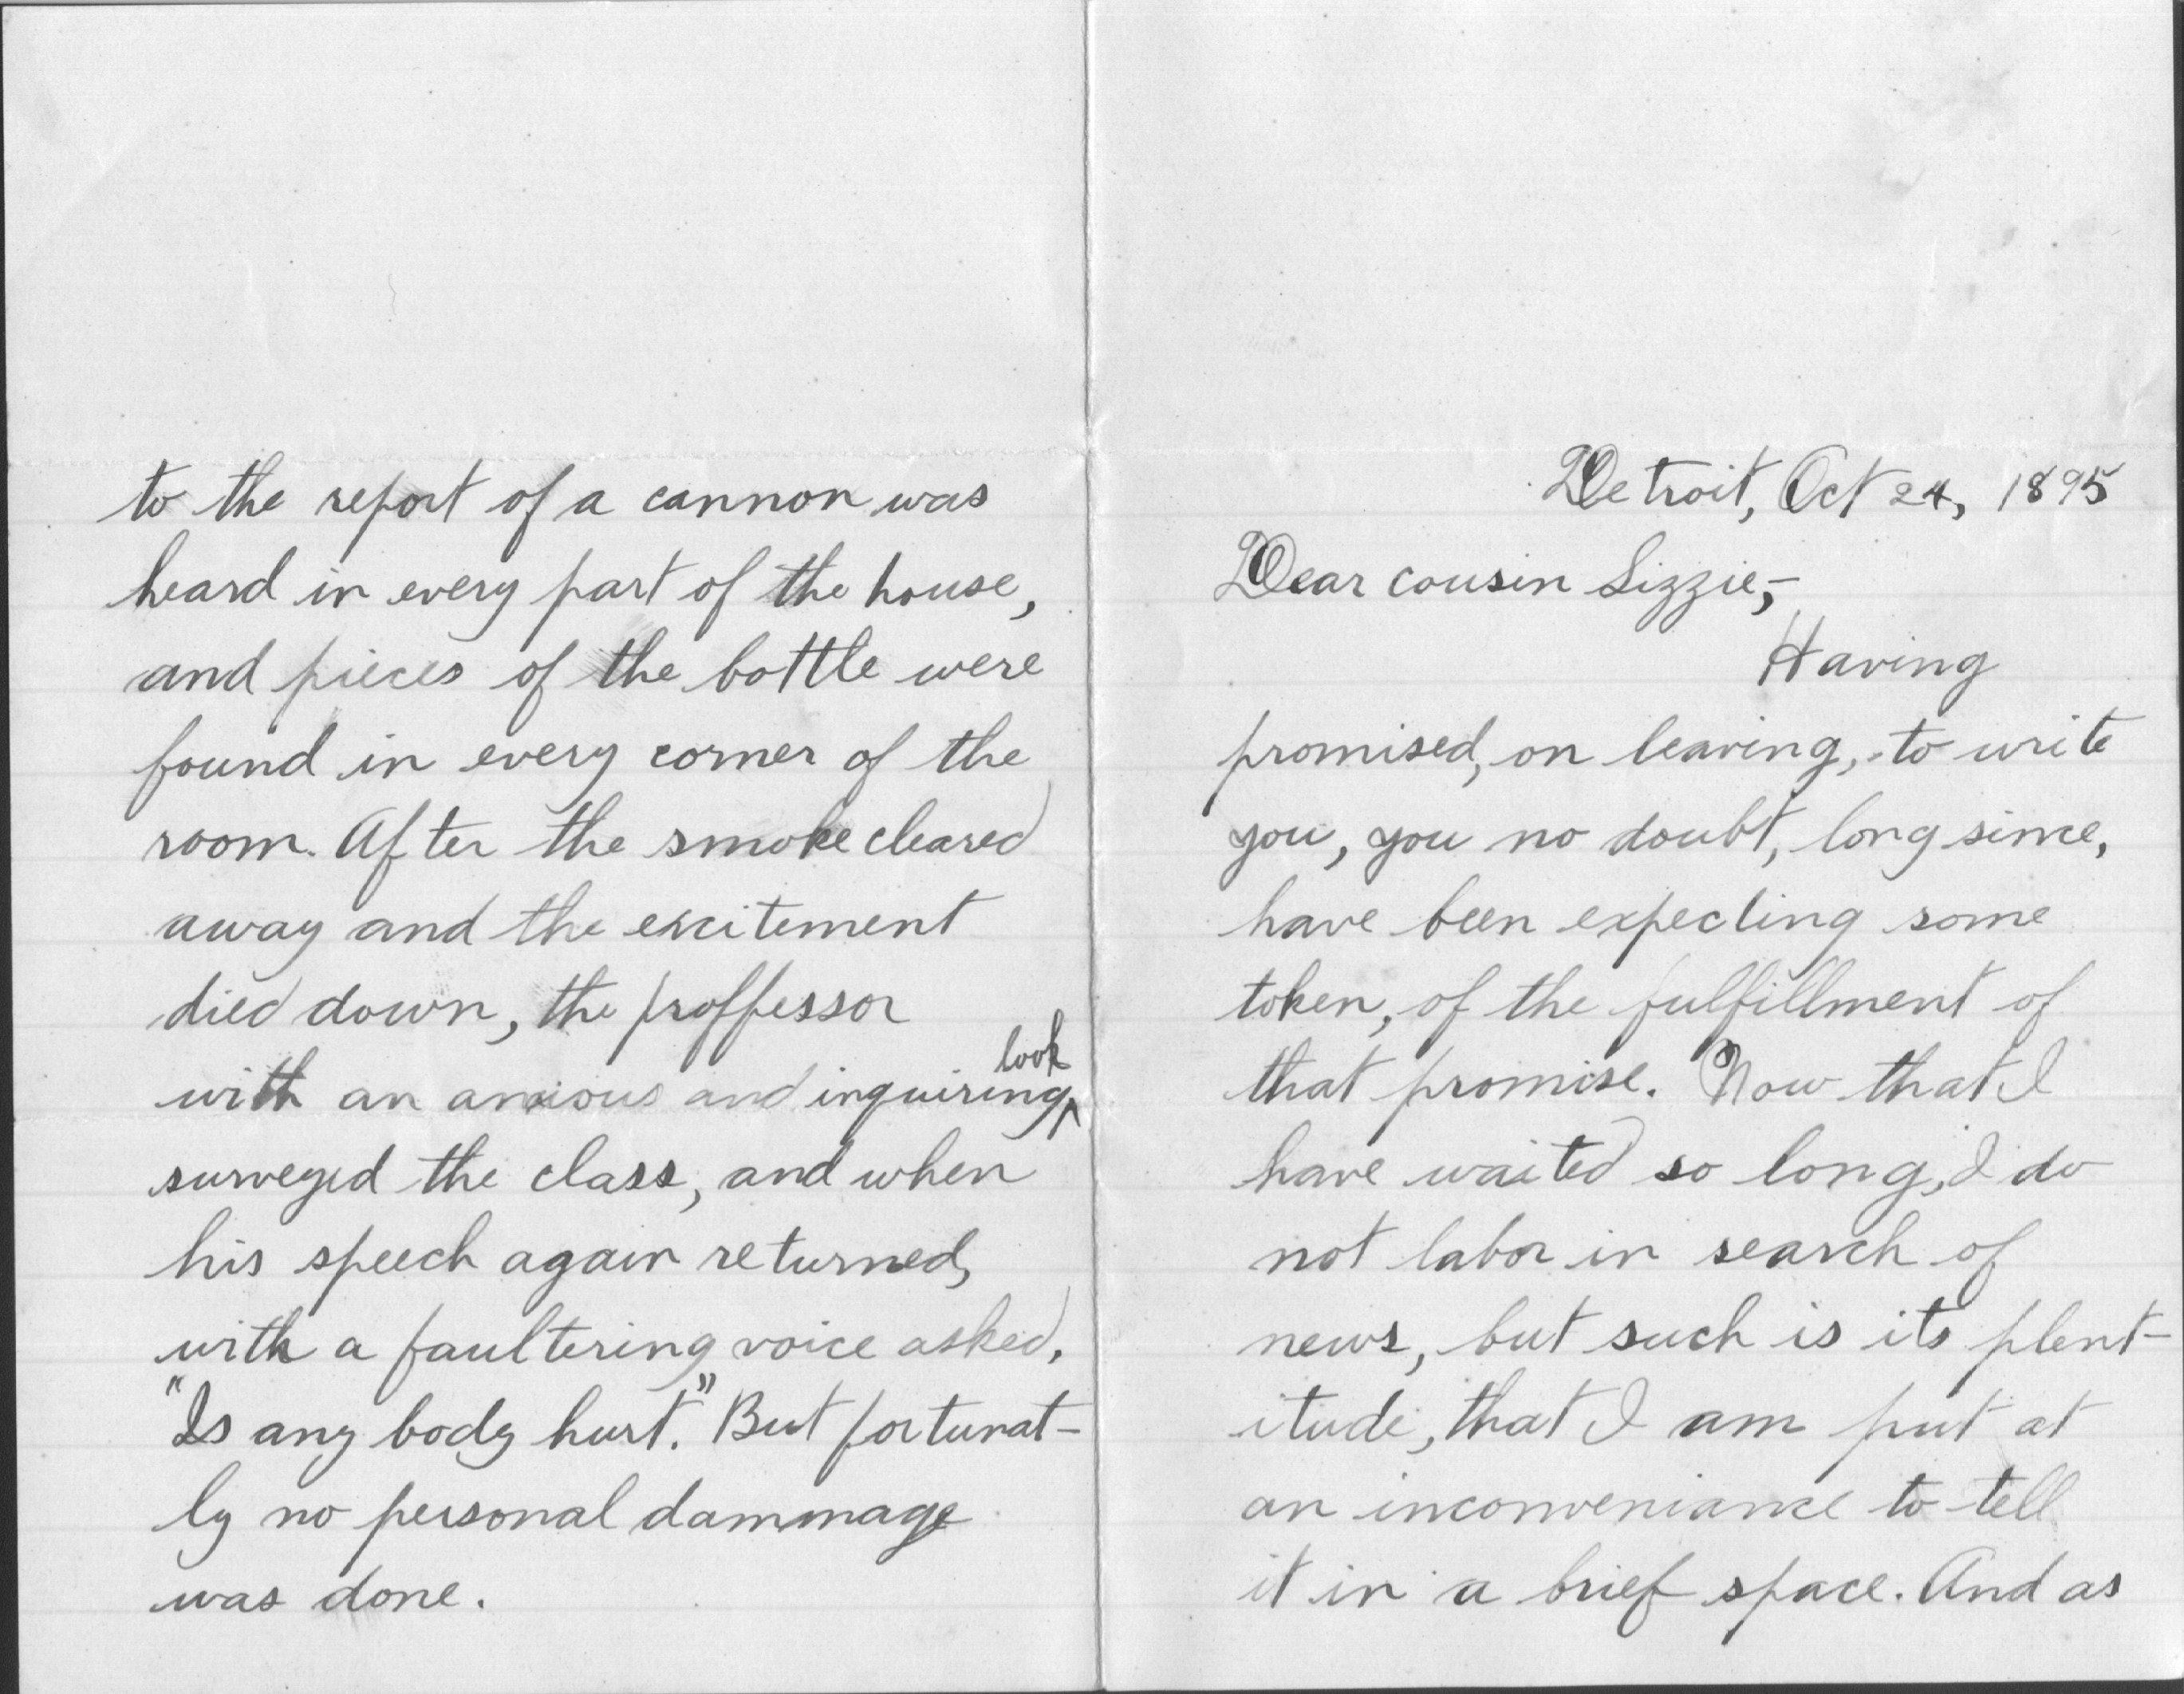 to the report of a cannon was
heard in every part of the house,
and pieces of the bottle were
found in every corner of the
room. After the smoke cleared
away and the excitement
died down, the proffessor
with an anxious and inquiring look
surveyed the class, and when
his speech again returned,
with a faultering voice asked,
"Is any body hurt." But fortunat-
ly no personal dammage
was done.
Detroit, Oct 24, 1895
Dear cousin Lizzie,-
Having
promised, on leaving, to write
you, you no doubt, long since,
have been expecting some
token, of the fulfillment of
that promise. Now that I
have waited so long, I do
not labor in search of
news, but such is its plent-
itude, that I am put at
an inconveniance to tell
it in a brief space. And as